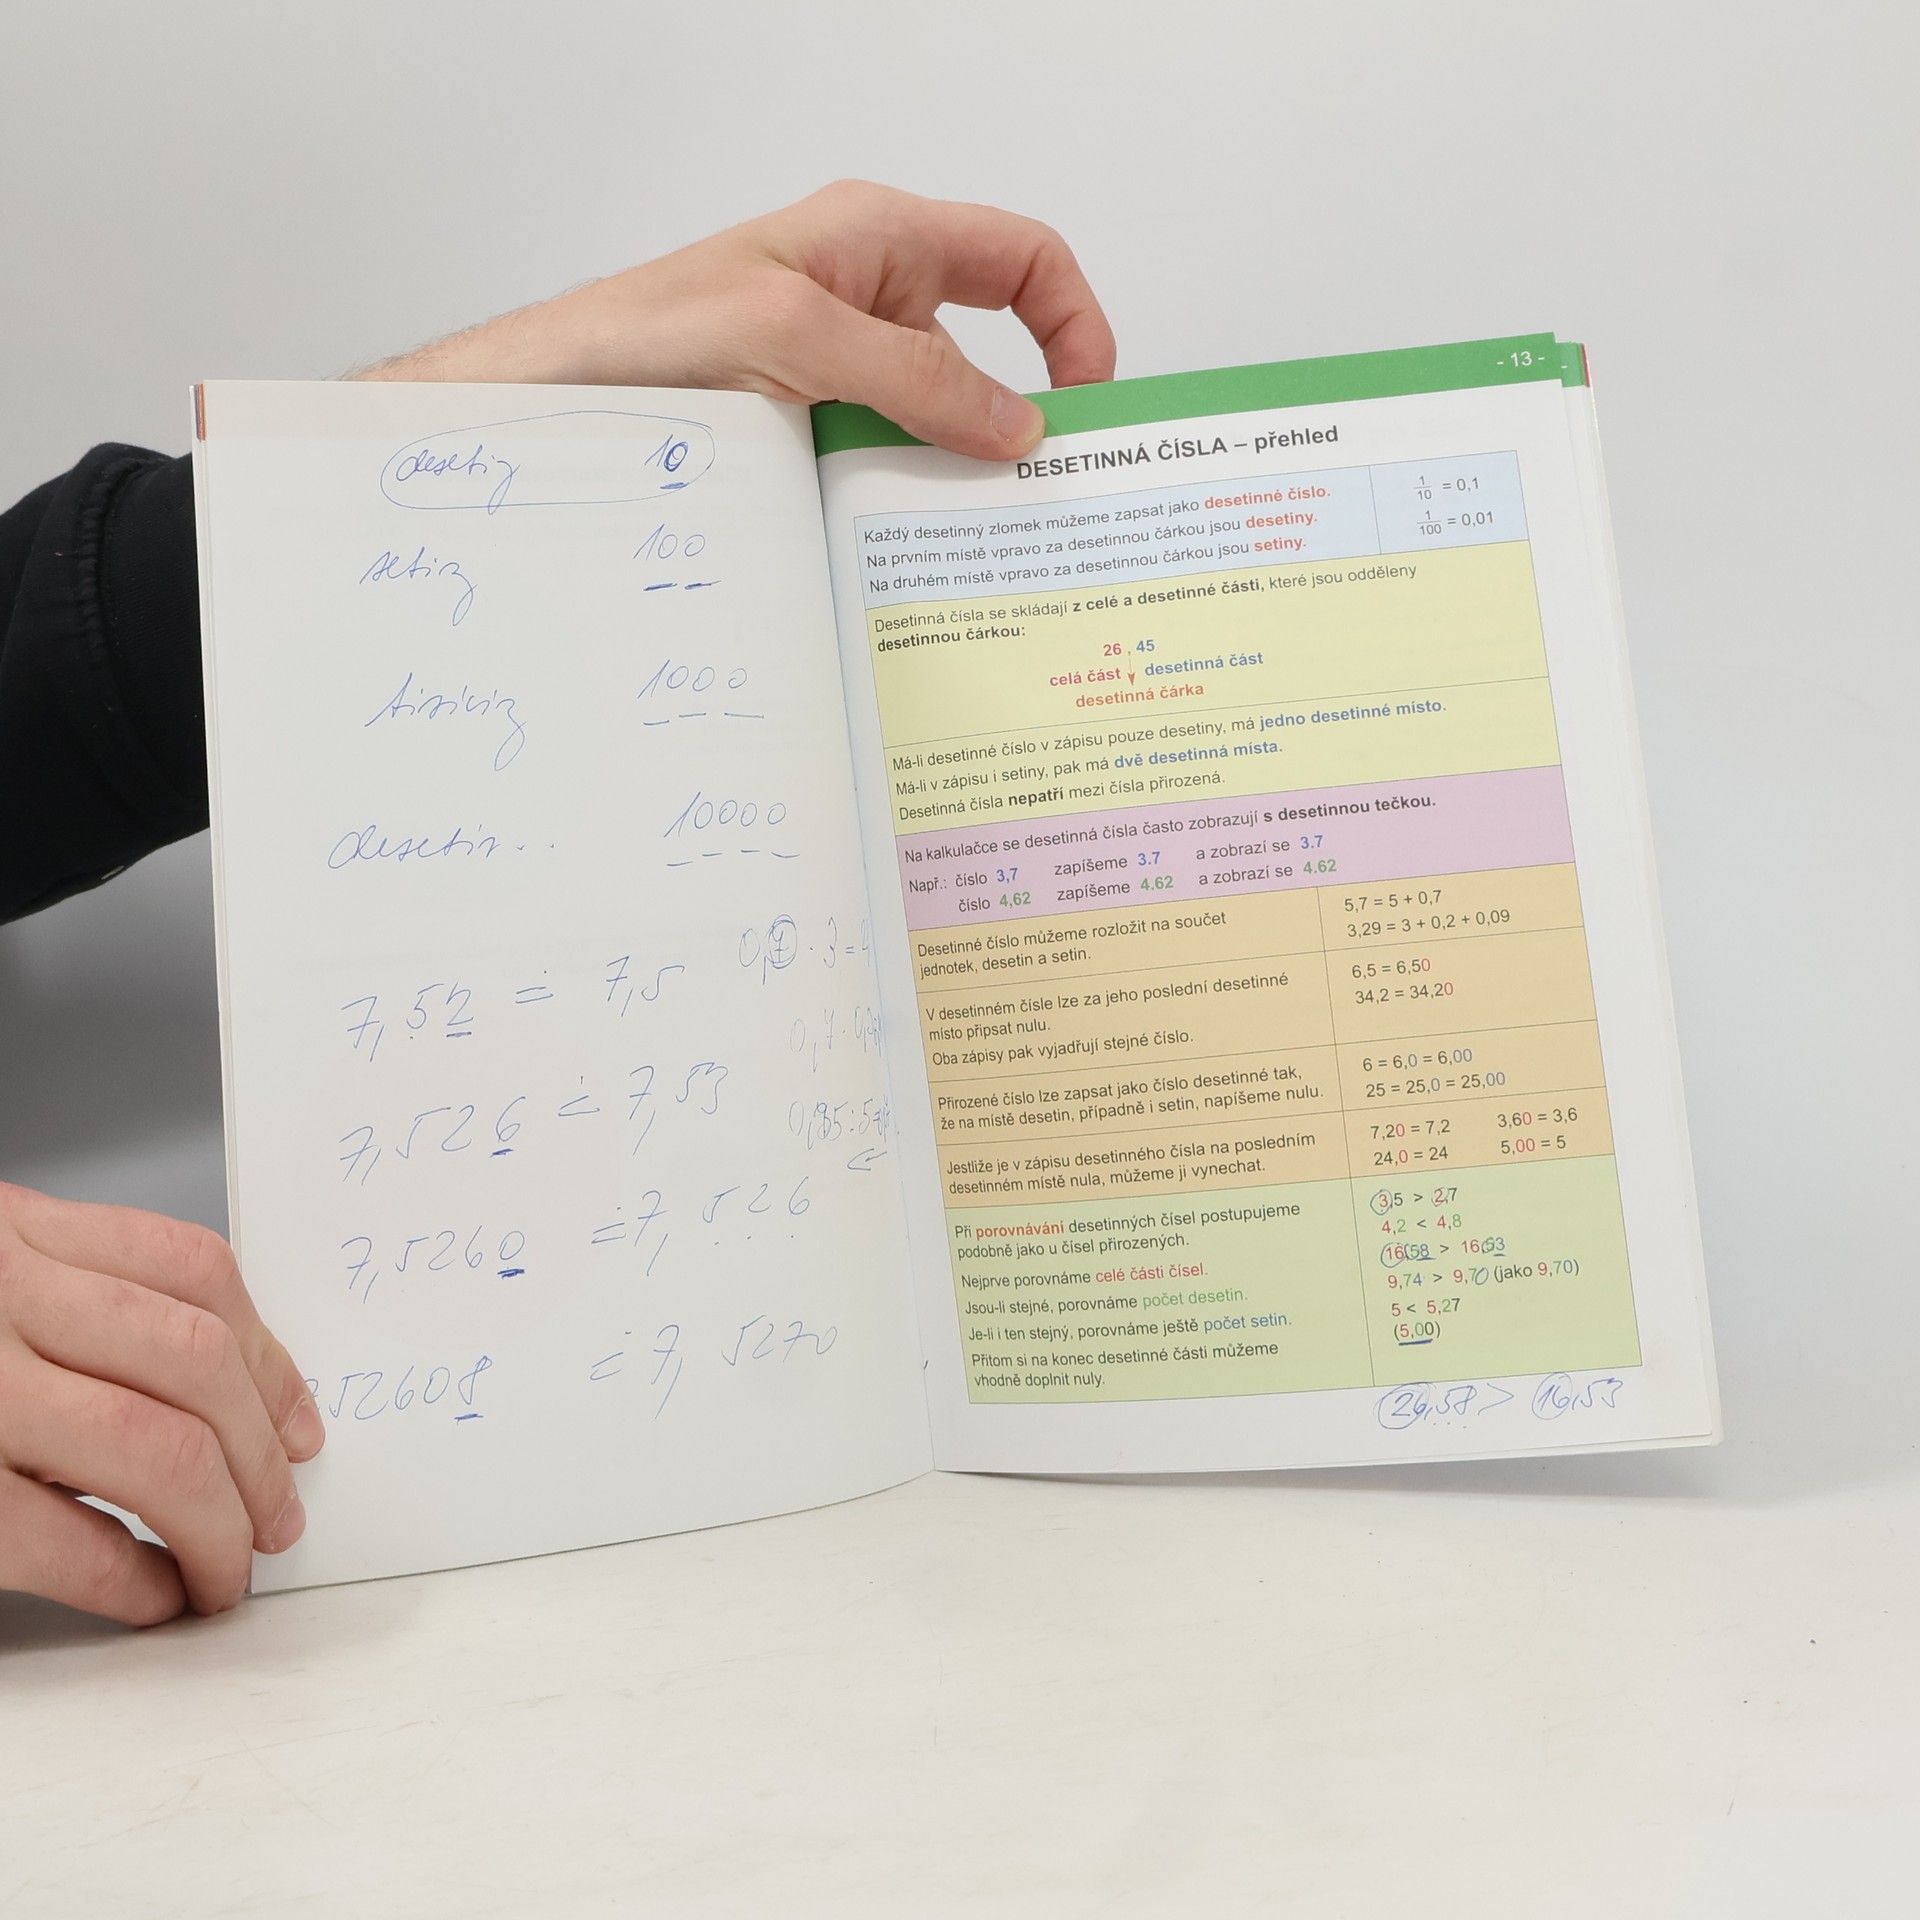 desetiny 10
setiny 100
tisíciny 1000
desetin.. 10000
7,52 ≐ 7,5
7,526 ≐ 7,53
7,5260 ≐ 7,526
52608 ≐ 7,5270
- 13 -
DESETINNÁ ČÍSLA – přehled
Každý desetinný zlomek můžeme zapsat jako desetinné číslo.
Na prvním místě vpravo za desetinnou čárkou jsou desetiny.
Na druhém místě vpravo za desetinnou čárkou jsou setiny.
1/10 = 0,1
1/100 = 0,01
Desetinná čísla se skládají z celé a desetinné části, které jsou odděleny
desetinnou čárkou:
26 , 45
celá část desetinná část
desetinná čárka
Má-li desetinné číslo v zápisu pouze desetiny, má jedno desetinné místo.
Má-li v zápisu i setiny, pak má dvě desetinná místa.
Desetinná čísla nepatří mezi čísla přirozená.
Na kalkulačce se desetinná čísla často zobrazují s desetinnou tečkou.
Např.: číslo 3,7 zapíšeme 3.7 a zobrazí se 3.7
číslo 4,62 zapíšeme 4.62 a zobrazí se 4.62
Desetinné číslo můžeme rozložit na součet
jednotek, desetin a setin.
5,7 = 5 + 0,7
3,29 = 3 + 0,2 + 0,09
V desetinném čísle lze za jeho poslední desetinné
místo připsat nulu.
Oba zápisy pak vyjadřují stejné číslo.
6,5 = 6,50
34,2 = 34,20
Přirozené číslo lze zapsat jako číslo desetinné tak,
že na místě desetin, případně i setin, napíšeme nulu.
6 = 6,0 = 6,00
25 = 25,0 = 25,00
Jestliže je v zápisu desetinného čísla na posledním
desetinném místě nula, můžeme ji vynechat.
7,20 = 7,2 3,60 = 3,6
24,0 = 24 5,00 = 5
Při porovnávání desetinných čísel postupujeme
podobně jako u čísel přirozených.
Nejprve porovnáme celé části čísel.
Jsou-li stejné, porovnáme počet desetin.
Je-li i ten stejný, porovnáme ještě počet setin.
Přitom si na konec desetinné části můžeme
vhodně doplnit nuly.
3,5 > 2,7
4,2 < 4,8
16,58 > 16,53
9,74 > 9,70 (jako 9,70)
5 < 5,27
(5,00)
26,58 > 16,53